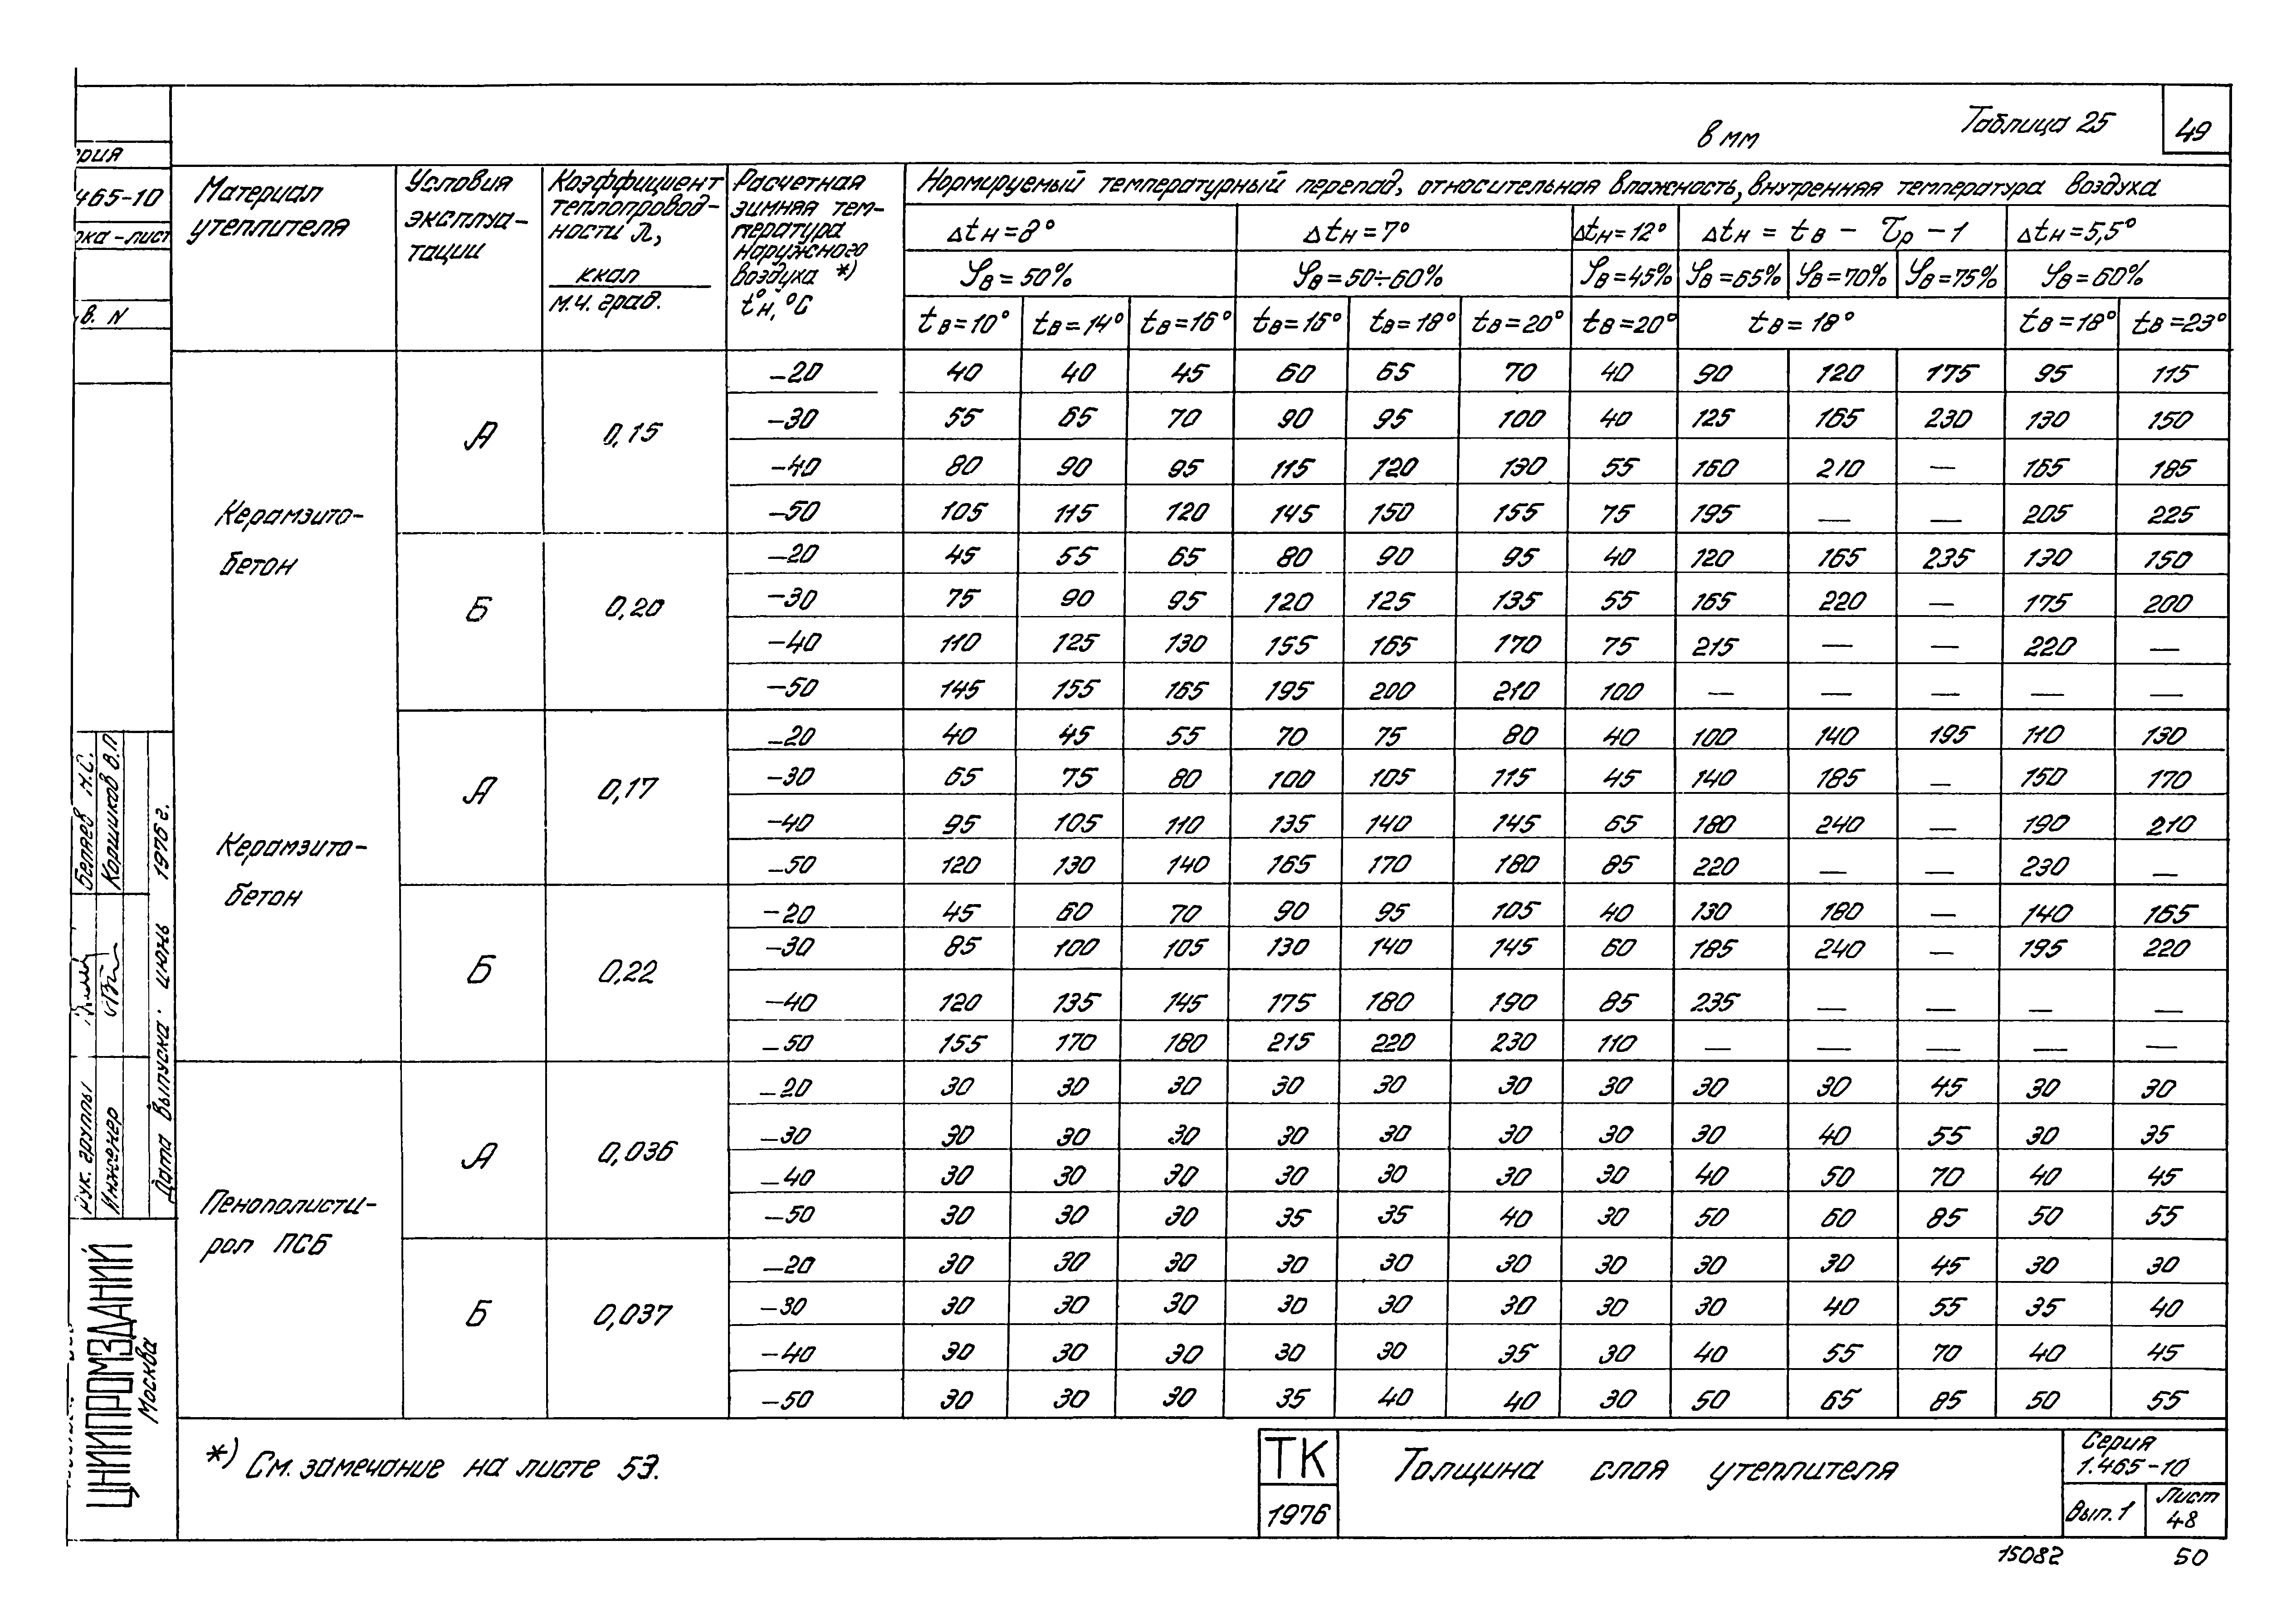 Таблица 25
49
в мм
рия
465-10
рка-лист
в. N
Материал утеплителя
Условия эксплуа-тации
Коэффициент теплопровод-ности λ, ккал / м.ч. град.
Расчетная зимняя тем-пература наружного воздуха *) t°н, °С
Нормируемый температурный перепад, относительная влажность, внутренняя температура воздуха
Δtн=8° Δtн=7° Δtн=12° Δtн = tв – τр – 1 Δtн=5,5°
φв=50% φв=50÷60% φв=45% φв=65% φв=70% φв=75% φв=60%
tв=10° tв=14° tв=16° tв=16° tв=18° tв=20° tв=20° tв=18° tв=18° tв=23°
Керамзито-
бетон
А 0,15
–20 40 40 45 60 65 70 40 90 120 175 95 115
–30 55 65 70 90 95 100 40 125 165 230 130 150
–40 80 90 95 115 120 130 55 160 210 — 165 185
–50 105 115 120 145 150 155 75 195 — — 205 225
Б 0,20
–20 45 55 65 80 90 95 40 120 165 235 130 150
–30 75 90 95 120 125 135 55 165 220 — 175 200
–40 110 125 130 155 165 170 75 215 — — 220 —
–50 145 155 165 195 200 210 100 — — — — —
Керамзито-
бетон
А 0,17
–20 40 45 55 70 75 80 40 100 140 195 110 130
–30 65 75 80 100 105 115 45 140 185 — 150 170
–40 95 105 110 135 140 145 65 180 240 — 190 210
–50 120 130 140 165 170 180 85 220 — — 230 —
Б 0,22
–20 45 60 70 90 95 105 40 130 180 — 140 165
–30 85 100 105 130 140 145 60 185 240 — 195 220
–40 120 135 145 175 180 190 85 235 — — — —
–50 155 170 180 215 220 230 110 — — — — —
Пенополисти-
рол ПСБ
А 0,036
–20 30 30 30 30 30 30 30 30 30 45 30 30
–30 30 30 30 30 30 30 30 30 40 55 30 35
–40 30 30 30 30 30 30 30 40 50 70 40 45
–50 30 30 30 35 35 40 30 50 60 85 50 55
Б 0,037
–20 30 30 30 30 30 30 30 30 30 45 30 30
–30 30 30 30 30 30 30 30 30 40 55 35 40
–40 30 30 30 30 30 35 30 40 55 70 40 45
–50 30 30 30 35 40 40 30 50 65 85 50 55
*) См. замечание на листе 53.
ТК
1976
Толщина слоя утеплителя
Серия
1.465-10
Вып.1
Лист
48
15082 50
Рук. группы Беляев Н.С.
Инженер Коршиков В.П
Дата Выпуска· июнь 1976 г.
ЦНИИПРОМЗДАНИЙ
Москва